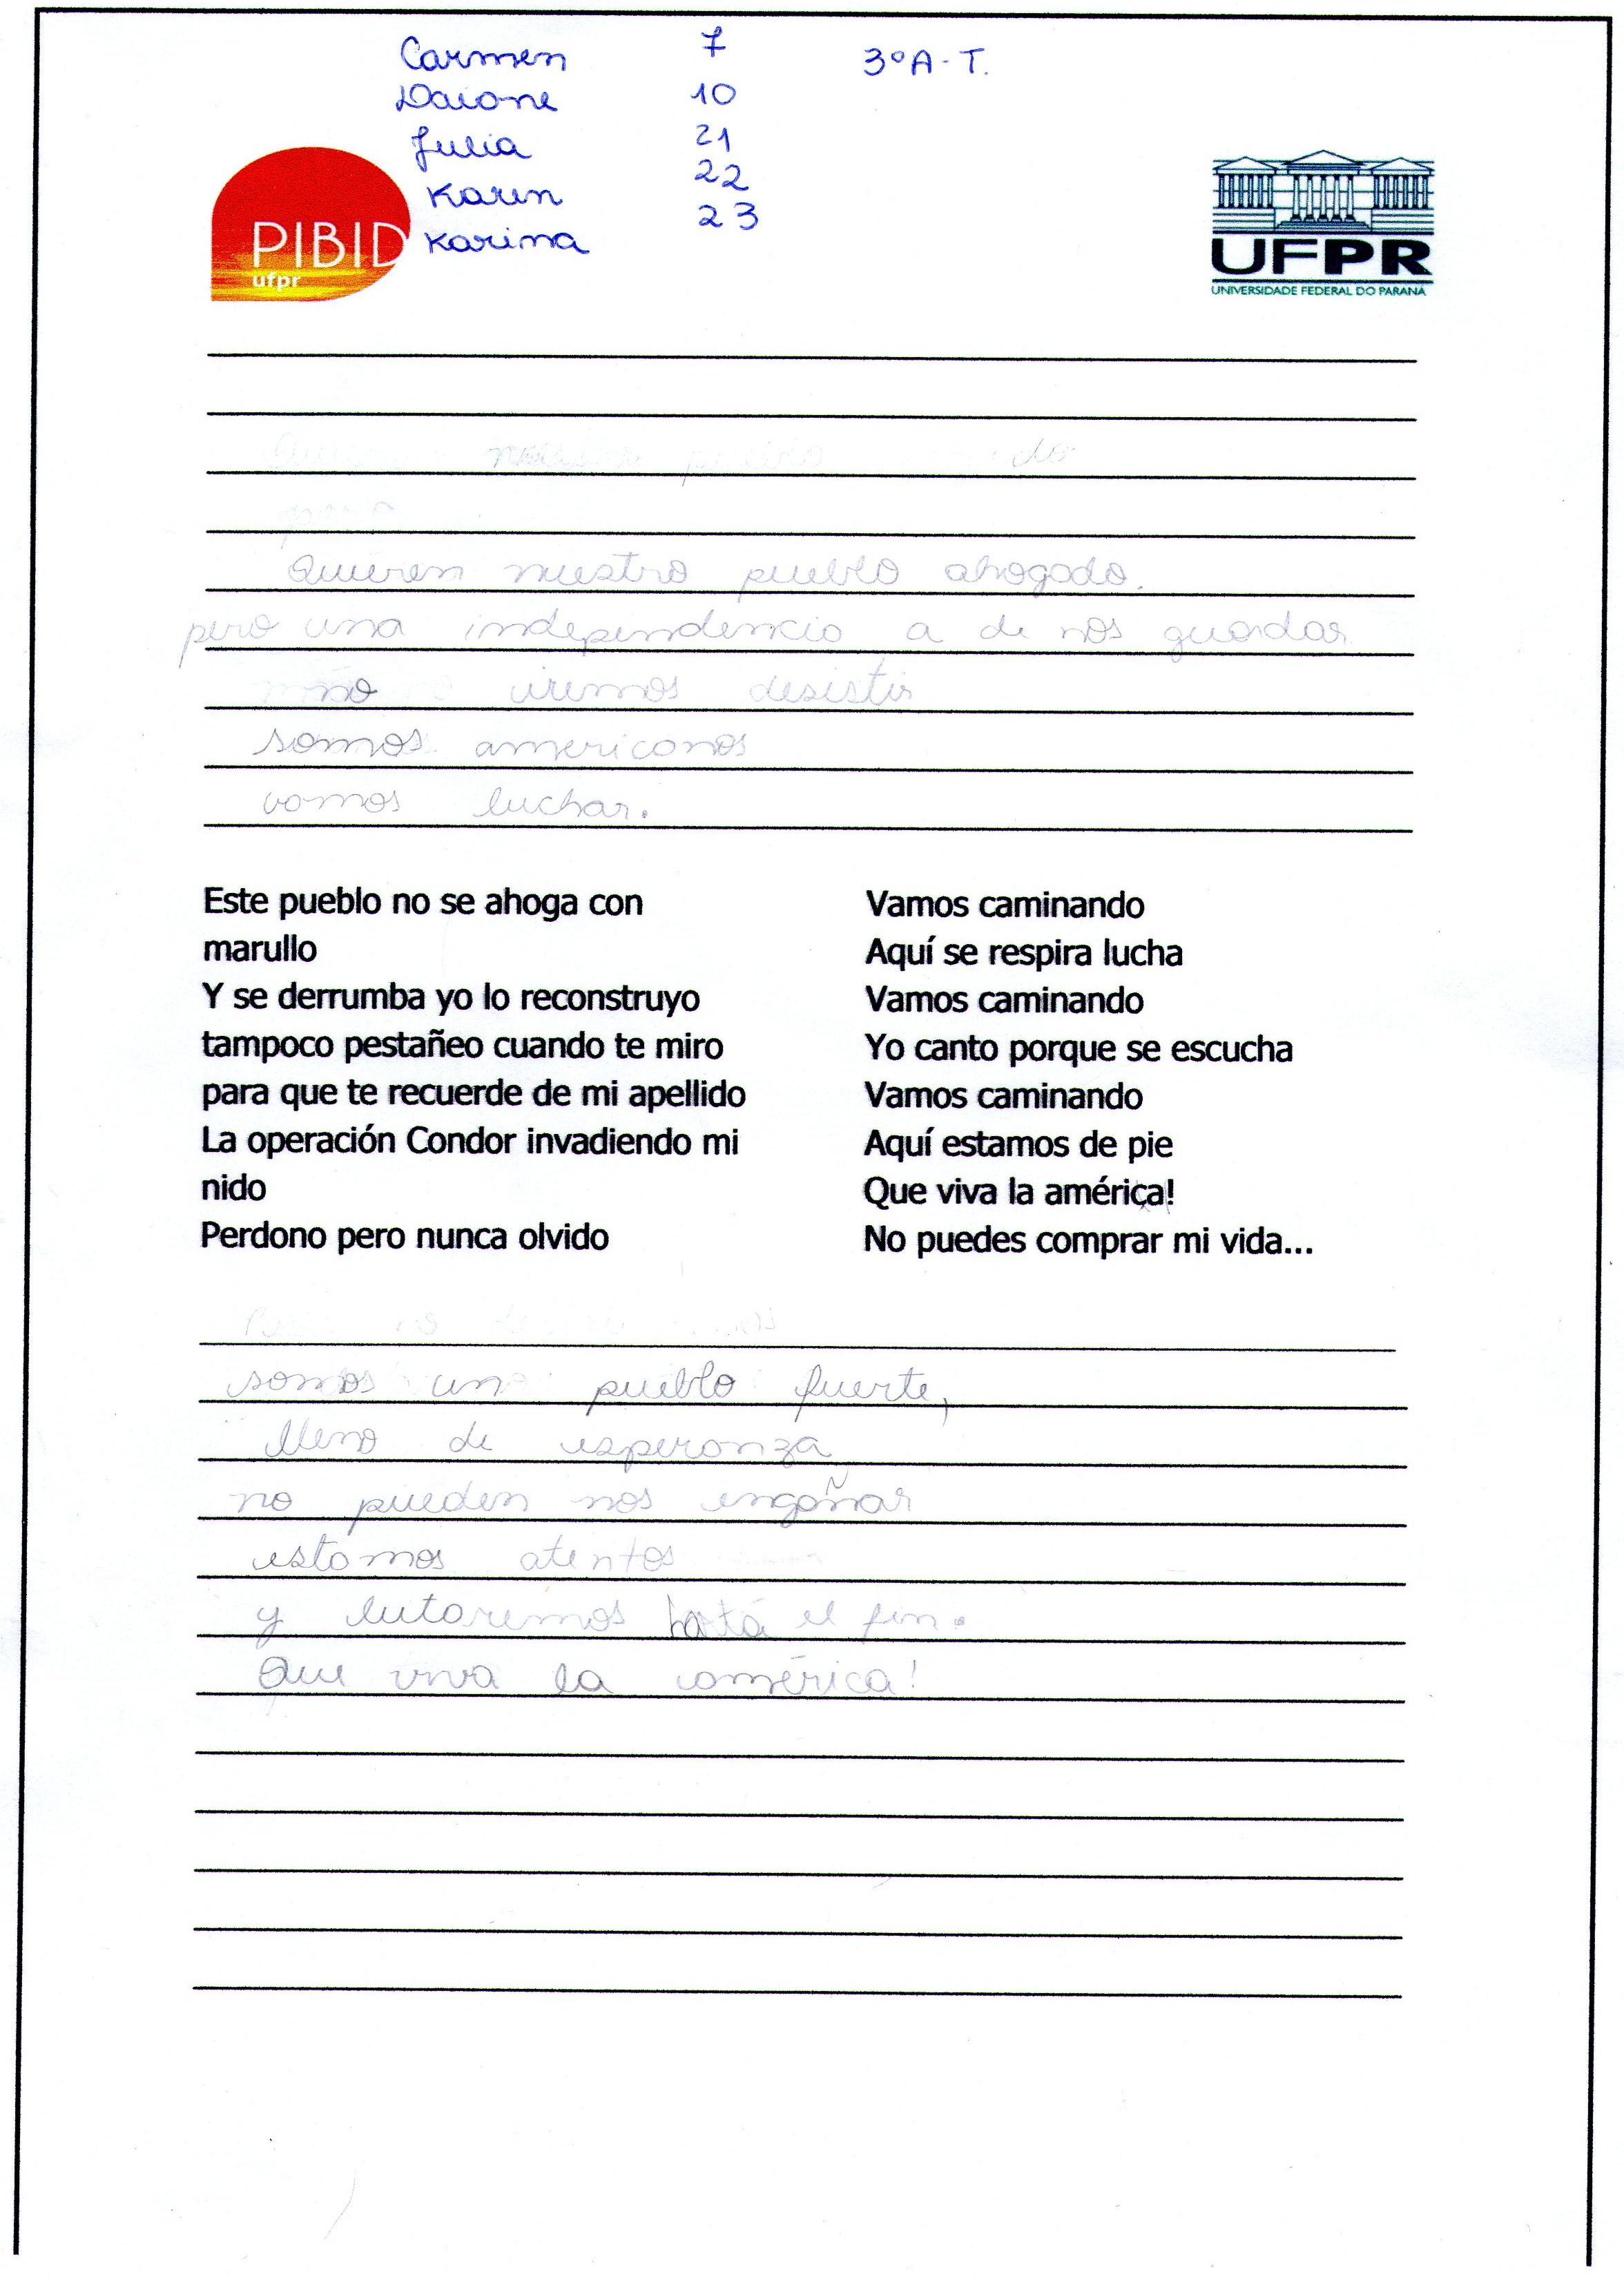 Carmen 7 3ºA-T.
Daiane 10
Julia 21
Karen 22
Karina 23
PIBID
ufpr
UFPR
UNIVERSIDADE FEDERAL DO PARANÁ
Quieren nuestro pueblo ahogado.
pero una independencia a de nos guardar
no iremos desistir
somos americanos
vamos luchar.
Este pueblo no se ahoga con
marullo
Y se derrumba yo lo reconstruyo
tampoco pestañeo cuando te miro
para que te recuerde de mi apellido
La operación Condor invadiendo mi
nido
Perdono pero nunca olvido
Vamos caminando
Aquí se respira lucha
Vamos caminando
Yo canto porque se escucha
Vamos caminando
Aquí estamos de pie
Que viva la américa!
No puedes comprar mi vida...
somos un pueblo fuerte,
lleno de esperanza
no pueden nos engañar
estamos atentos
y lutaremos hatá el fin.
Que viva la américa!